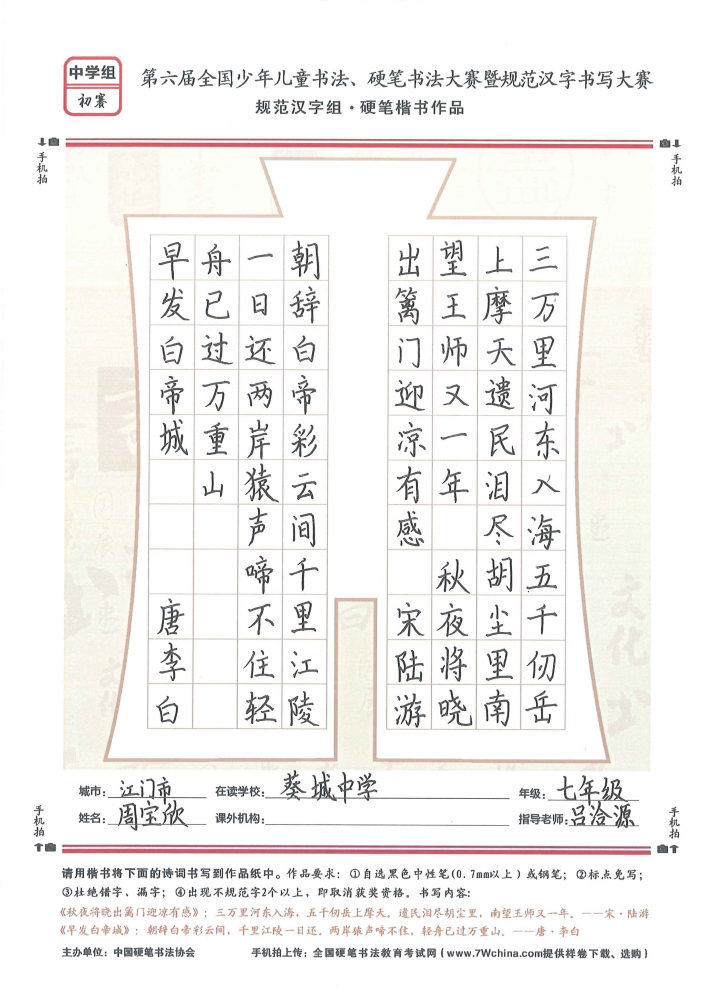 中学组
初赛
第六届全国少年儿童书法、硬笔书法大赛暨规范汉字书写大赛
规范汉字组·硬笔楷书作品
手机拍
手机拍
三万里河东入海五千仞岳
上摩天遗民泪尽胡尘里南
望王师又一年 秋夜将晓
出篱门迎凉有感 宋陆游
朝辞白帝彩云间千里江陵
一日还两岸猿声啼不住轻
舟已过万重山
早发白帝城 唐李白
城市：江门市 在读学校：葵城中学 年级：七年级
姓名：周宝欣 课外机构： 指导老师：吕洽源
手机拍
手机拍
请用楷书将下面的诗词书写到作品纸中。作品要求：①自选黑色中性笔(0.7mm以上)或钢笔；②标点免写；
③杜绝错字、漏字；④出现不规范字2个以上，即取消获奖资格。书写内容：
《秋夜将晓出篱门迎凉有感》：三万里河东入海，五千仞岳上摩天。遗民泪尽胡尘里，南望王师又一年。——宋·陆游
《早发白帝城》：朝辞白帝彩云间，千里江陵一日还。两岸猿声啼不住，轻舟已过万重山。——唐·李白
主办单位：中国硬笔书法协会 手机拍上传：全国硬笔书法教育考试网（www.7Wchina.com提供样卷下载、选购）